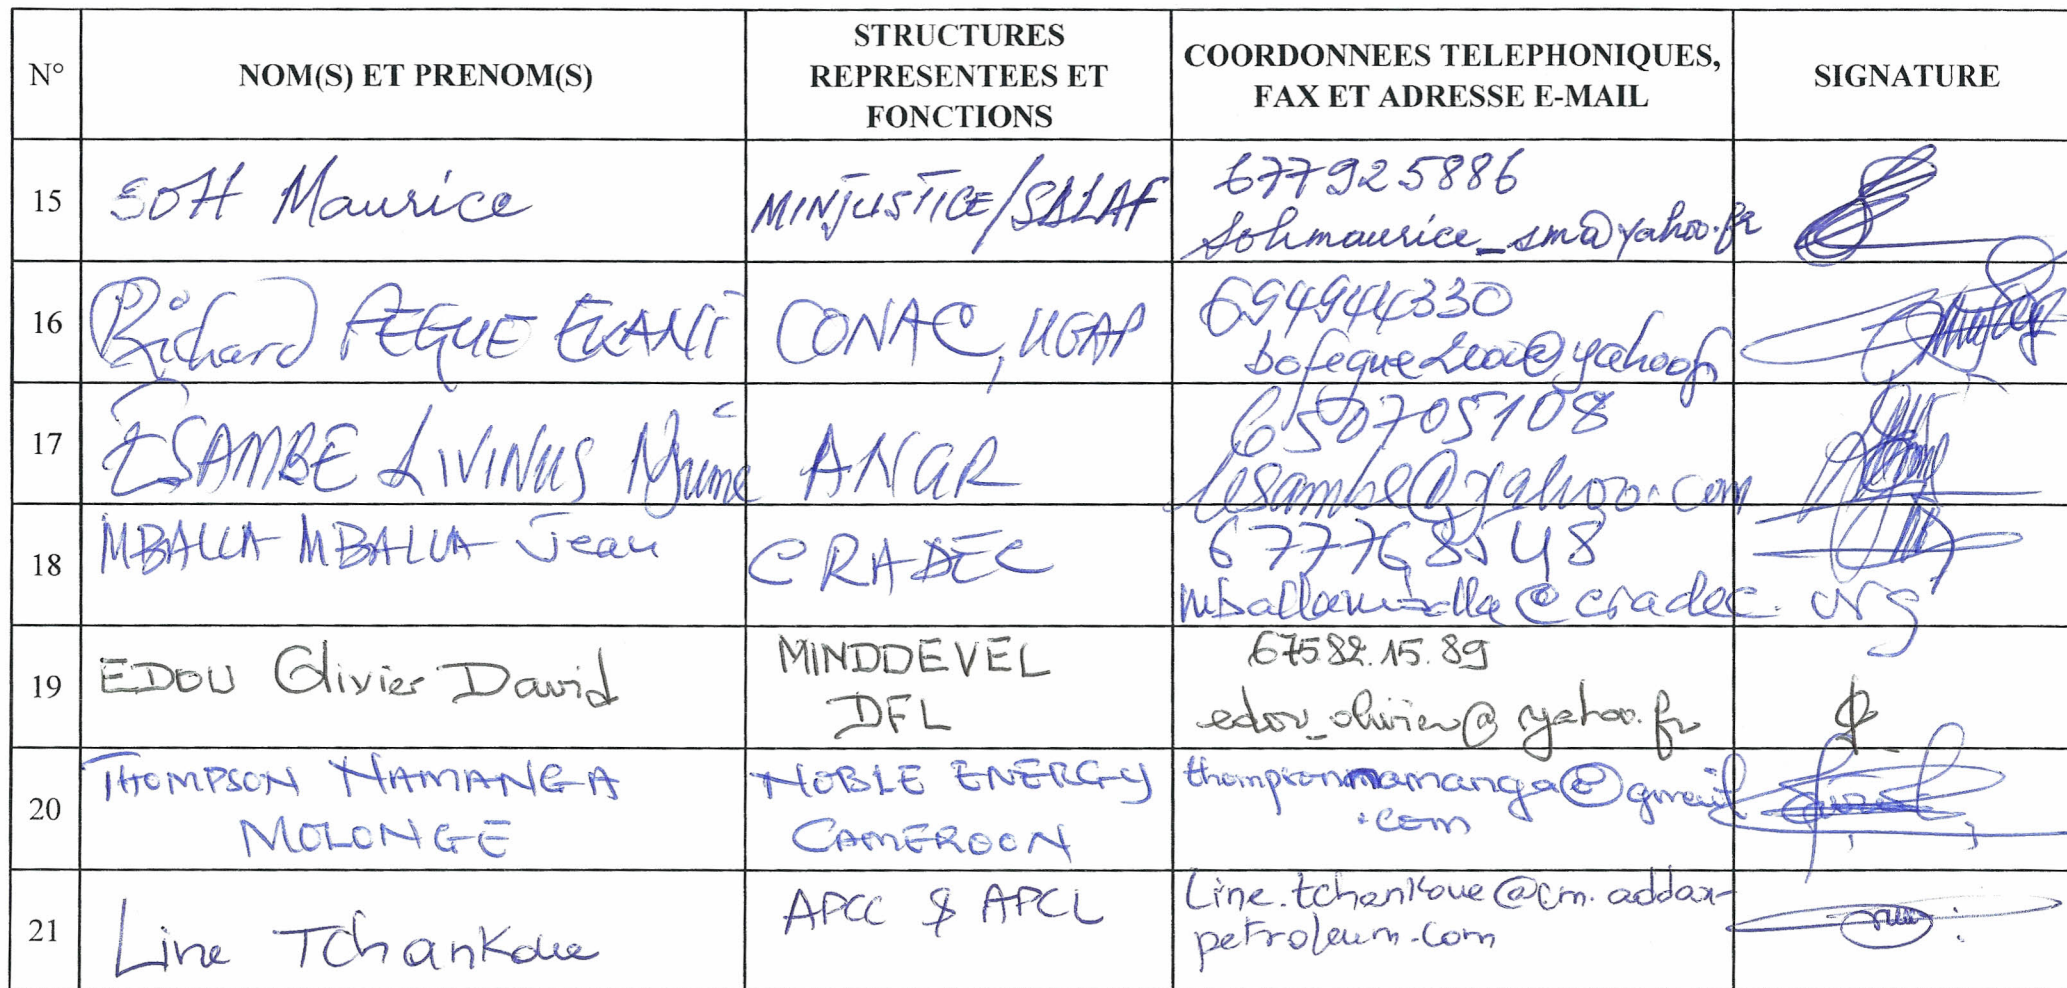 N°
NOM(S) ET PRENOM(S)
STRUCTURES
REPRESENTEES ET
FONCTIONS
COORDONNEES TELEPHONIQUES,
FAX ET ADRESSE E-MAIL
SIGNATURE
15
SOH Maurice
MINJUSTICE/SBLAF
677925886
sohmaurice_sm@yahoo.fr
16
Richard FEGUE EKANI
CONAC,
694944330
17
ESAMBE LIVINUS Njume
ANGR
650705108
lesambe@yahoo.com
18
MBALLA MBALLA Jean
CRADEC
677768548
mballambella@cradec.org
19
EDOU Olivier David
MINDDEVEL
DFL
67582.15.89
edou_olivier@yahoo.fr
20
THOMPSON NAMANGA
MOLONGE
NOBLE ENERGY
CAMEROON
thompsonnamanga@gmail
.com
21
Line Tchankoue
APCC & APCL
Line.tchankoue@cm.addax-
petroleum.com